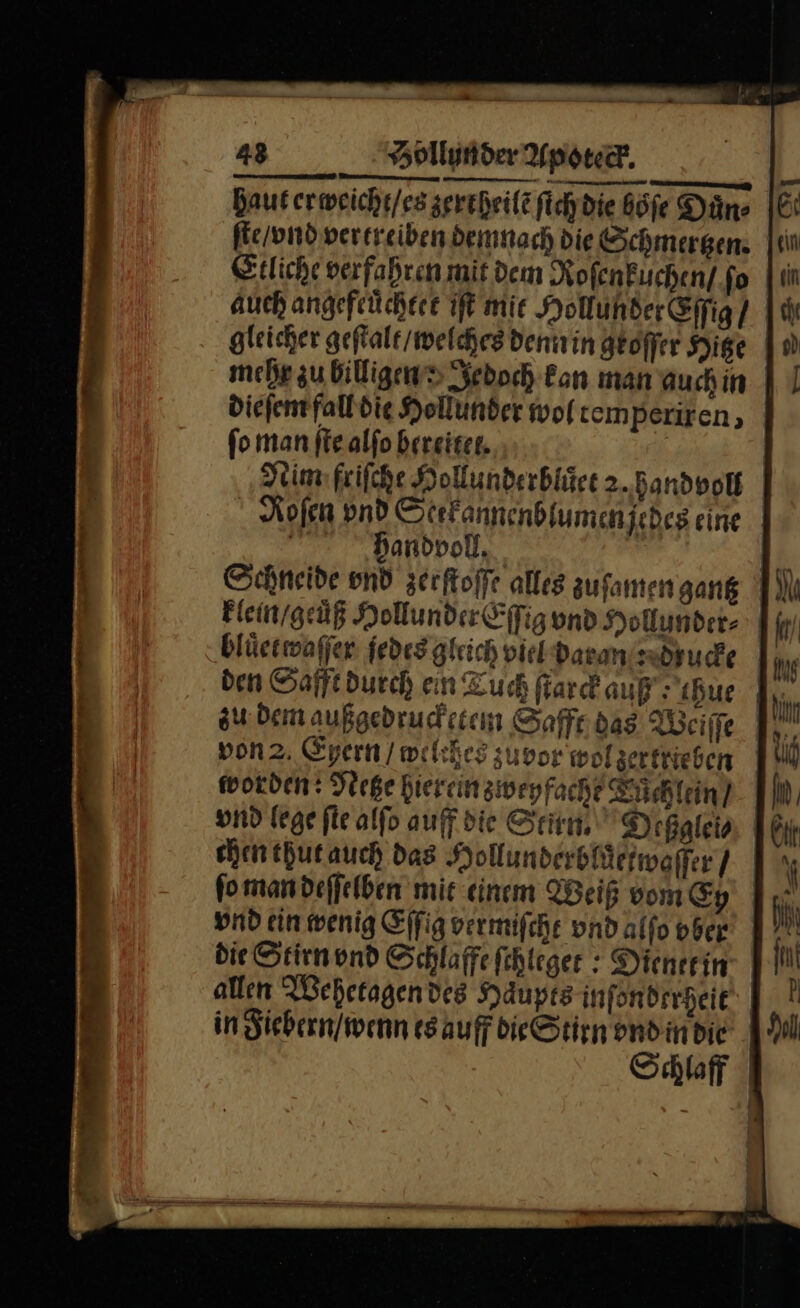 48 Hollunder Apoteck.
haut erweicht/es zertheilẽ ſich die böſe Dün⸗
ſte/vnd vertreiben demnach die Schmertzen.
Etliche verfahren mit dem Roſenkuchen/ ſo
auch angefeüchtet iſt mit Hollunder Eſſig /
gleicher geſtalt/welches denn in groſſer Hitze
mehr zu billigen: Jedoch kan man auch in
dieſem fall die Hollunder wol temperiren,
ſo man ſie alſo bereitet.
Nim friſche Hollunderblüet 2. handvoll
Roſen vnd Seekannenblumen jedes eine
handvoll.
Schneide vnd zerſtoſſe alles zuſamen gantz
klein/geüß Hollunder Eſſig vnd Hollunder⸗
blüetwaſſer jedes gleich viel daran: drucke
den Safft durch ein Tuch ſtarck auß: thue
zu dem außgedrucketem Safft das Weiſſe
von 2. Eyern / welches zuvor wol zertrieben
worden: Netze hierein zweyfache Tüchlein/
vnd lege ſie alſo auff die Stirn. Deßglei⸗
chen thut auch das Hollunderblüetwaſſer /
ſo man deſſelben mit einem Weiß vom Ey
vnd ein wenig Eſſig vermiſcht vnd alſo vber
die Stirn vnd Schlaffe ſchleget: Dienet in
allen Wehetagen des Häupts inſonderheit
in Fiebern/wenn es auff die Stirn vnd in die
Schlaff